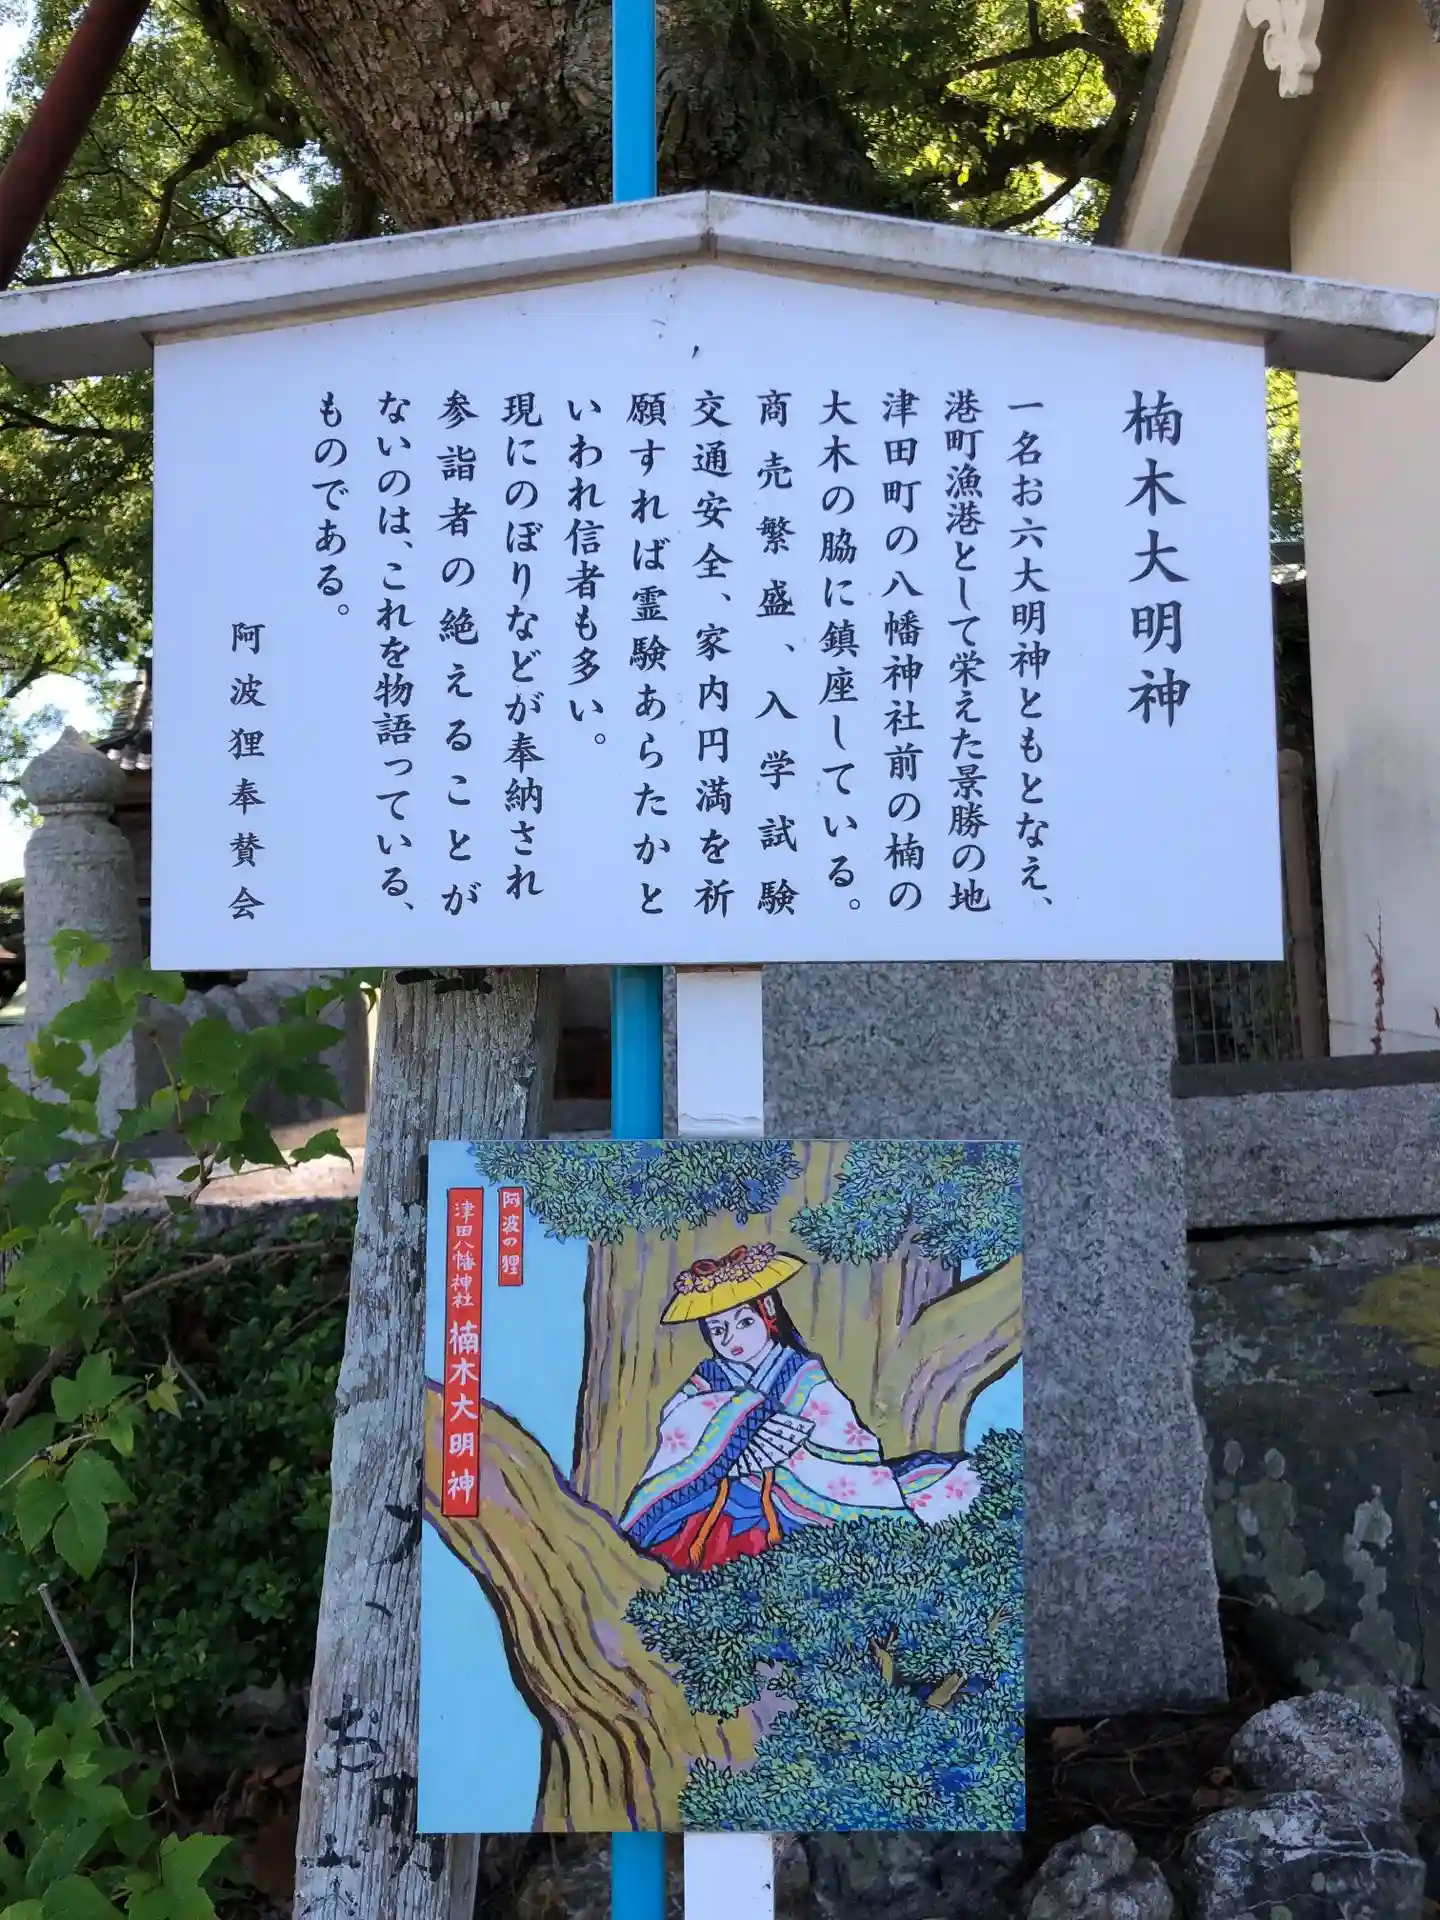 楠木大明神
一名お六大明神ともとなえ、
港町漁港として栄えた景勝の地
津田町の八幡神社前の楠の
大木の脇に鎮座している。
商売繁盛、入学試験
交通安全、家内円満を祈
願すれば霊験あらたかと
いわれ信者も多い。
現にのぼりなどが奉納され
参詣者の絶えることが
ないのは、これを物語っている、
ものである。
阿波狸奉賛会
阿波の狸
津田八幡神社 楠木大明神